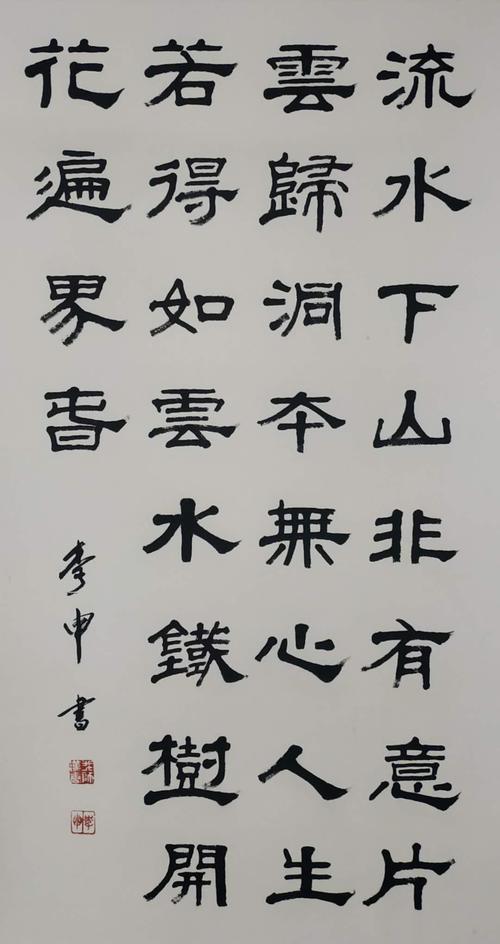 流水下山非有意片
雲歸洞本無心人生
若得如雲水鐵樹開
花遍界春
李申書